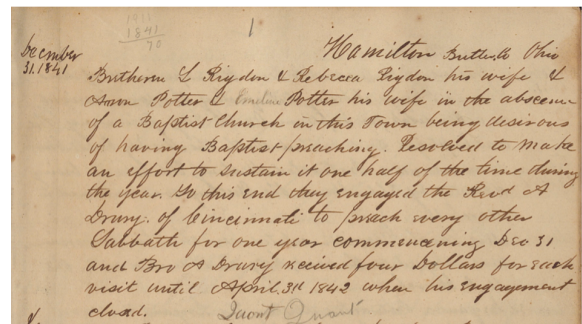 1911
1841
70
1
December
31. 1841
Hamilton Butler Co Ohio
Bretheren L Rigdon & Rebecca Rigdon his wife &
Amon Potter & Emeline Potter his wife in the abscence
of a Baptist Church in this Town being desirous
of having Baptist preaching. Resolved to make
an effort to sustain it one half of the time during
the year. To this end they engaged the Revd A
Drury. of Cincinnati to preach every other
Sabbath for one year commencing Dec 31
and Bro A Drury received four Dollars for each
visit until April 3d 1842 when his engagement
closed.